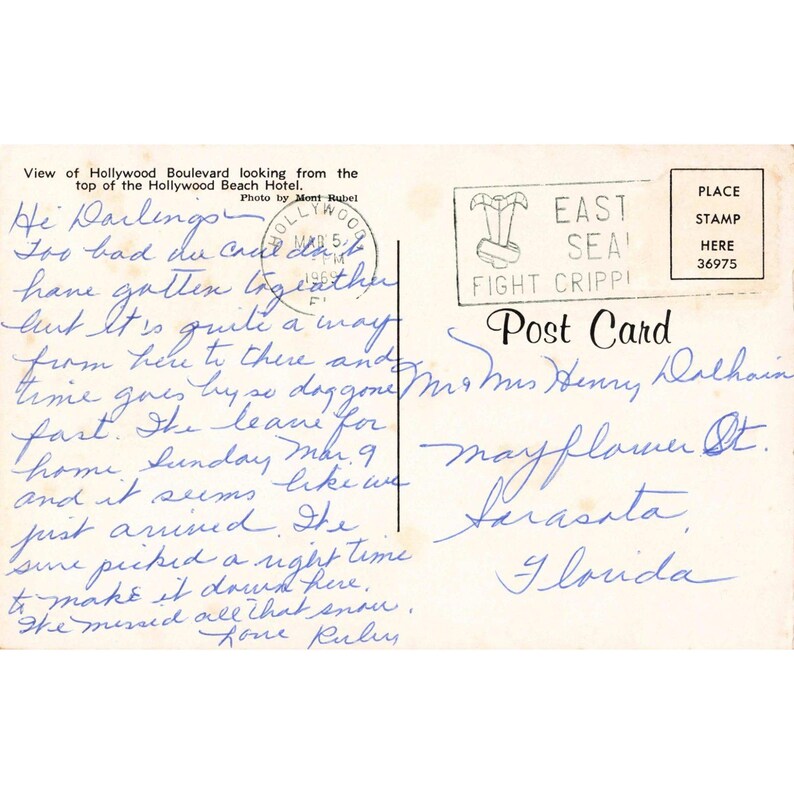 View of Hollywood Boulevard looking from the
top of the Hollywood Beach Hotel.
Photo by Moni Rubel
Hi Darlings
Too bad we couldn't
have gotten togeather
but it is quite a way
from here to there and
time goes by so doggone
fast. We leave for
home Sunday Mar. 9
and it seems like we
just arrived. We
sure picked a right time
to make it down here.
We missed all that snow.
Love Ruby
HOLLYWOOD
MAR 5
PM
1969
FL
EAST
SEA
FIGHT CRIPPL
PLACE
STAMP
HERE
36975
Post Card
Mr & Mrs Henry Dalhain
Mayflower St.
Sarasota,
Florida